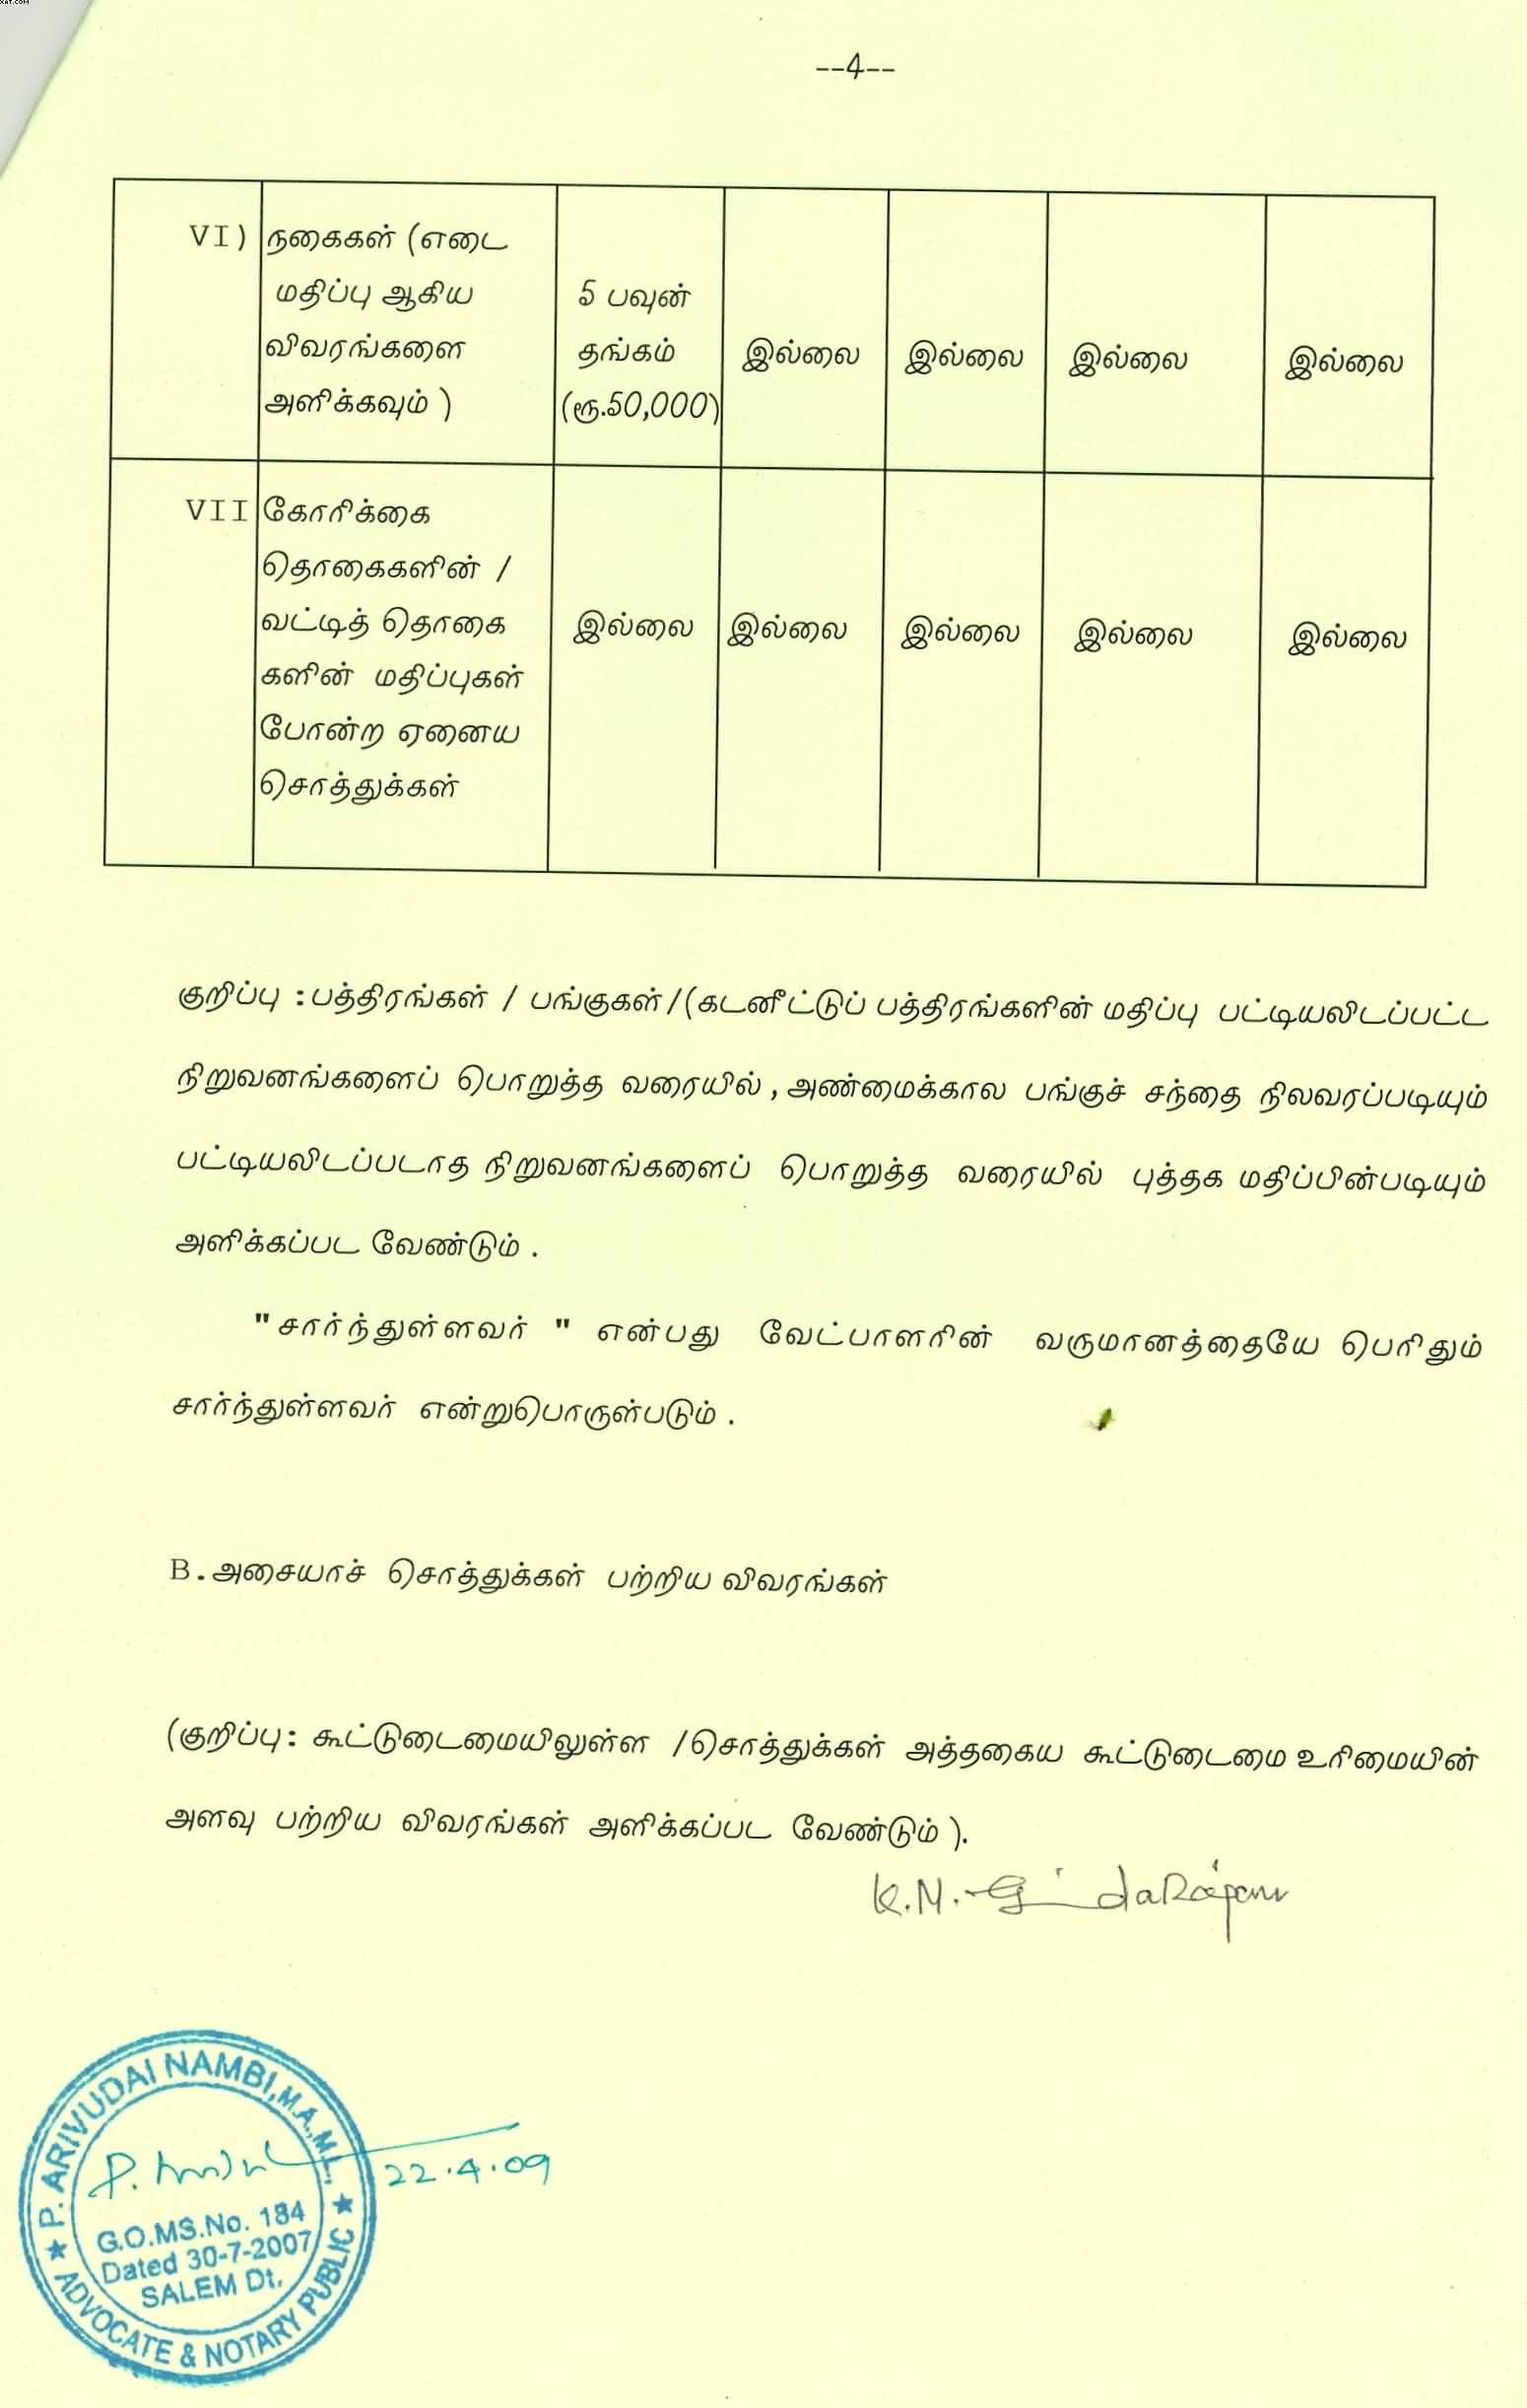 --4--
VI) நகைகள் (எடை
மதிப்பு ஆகிய
விவரங்களை
அளிக்கவும் )
5 பவுன்
தங்கம்
(ரூ.50,000)
இல்லை
இல்லை
இல்லை
இல்லை
VII கோரிக்கை
தொகைகளின் /
வட்டித் தொகை
களின் மதிப்புகள்
போன்ற ஏனைய
சொத்துக்கள்
இல்லை
இல்லை
இல்லை
இல்லை
இல்லை
குறிப்பு : பத்திரங்கள் / பங்குகள்/(கடனீட்டுப் பத்திரங்களின் மதிப்பு பட்டியலிடப்பட்ட
நிறுவனங்களைப் பொறுத்த வரையில் , அண்மைக்கால பங்குச் சந்தை நிலவரப்படியும்
பட்டியலிடப்படாத நிறுவனங்களைப் பொறுத்த வரையில் புத்தக மதிப்பின்படியும்
அளிக்கப்பட வேண்டும் .
" சார்ந்துள்ளவர் " என்பது வேட்பாளரின் வருமானத்தையே பெரிதும்
சார்ந்துள்ளவர் என்றுபொருள்படும் .
B. அசையாச் சொத்துக்கள் பற்றிய விவரங்கள்
(குறிப்பு: கூட்டுடைமையிலுள்ள /சொத்துக்கள் அத்தகைய கூட்டுடைமை உரிமையின்
அளவு பற்றிய விவரங்கள் அளிக்கப்பட வேண்டும் ).
K.N.
P. ARIVUDAI NAMBI, M.A., M.L.,
22.4.09
G.O.MS.No. 184
Dated 30-7-2007
SALEM Dt.
ADVOCATE & NOTARY PUBLIC